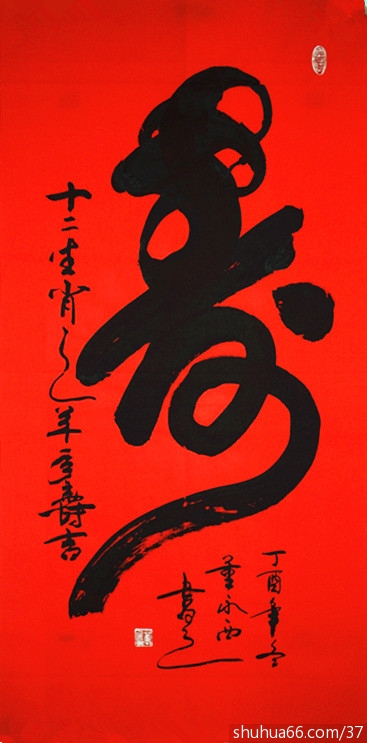 寿
十二生肖之羊壽吉
丁酉年冬
董永西
書之
shuhua66.com/37